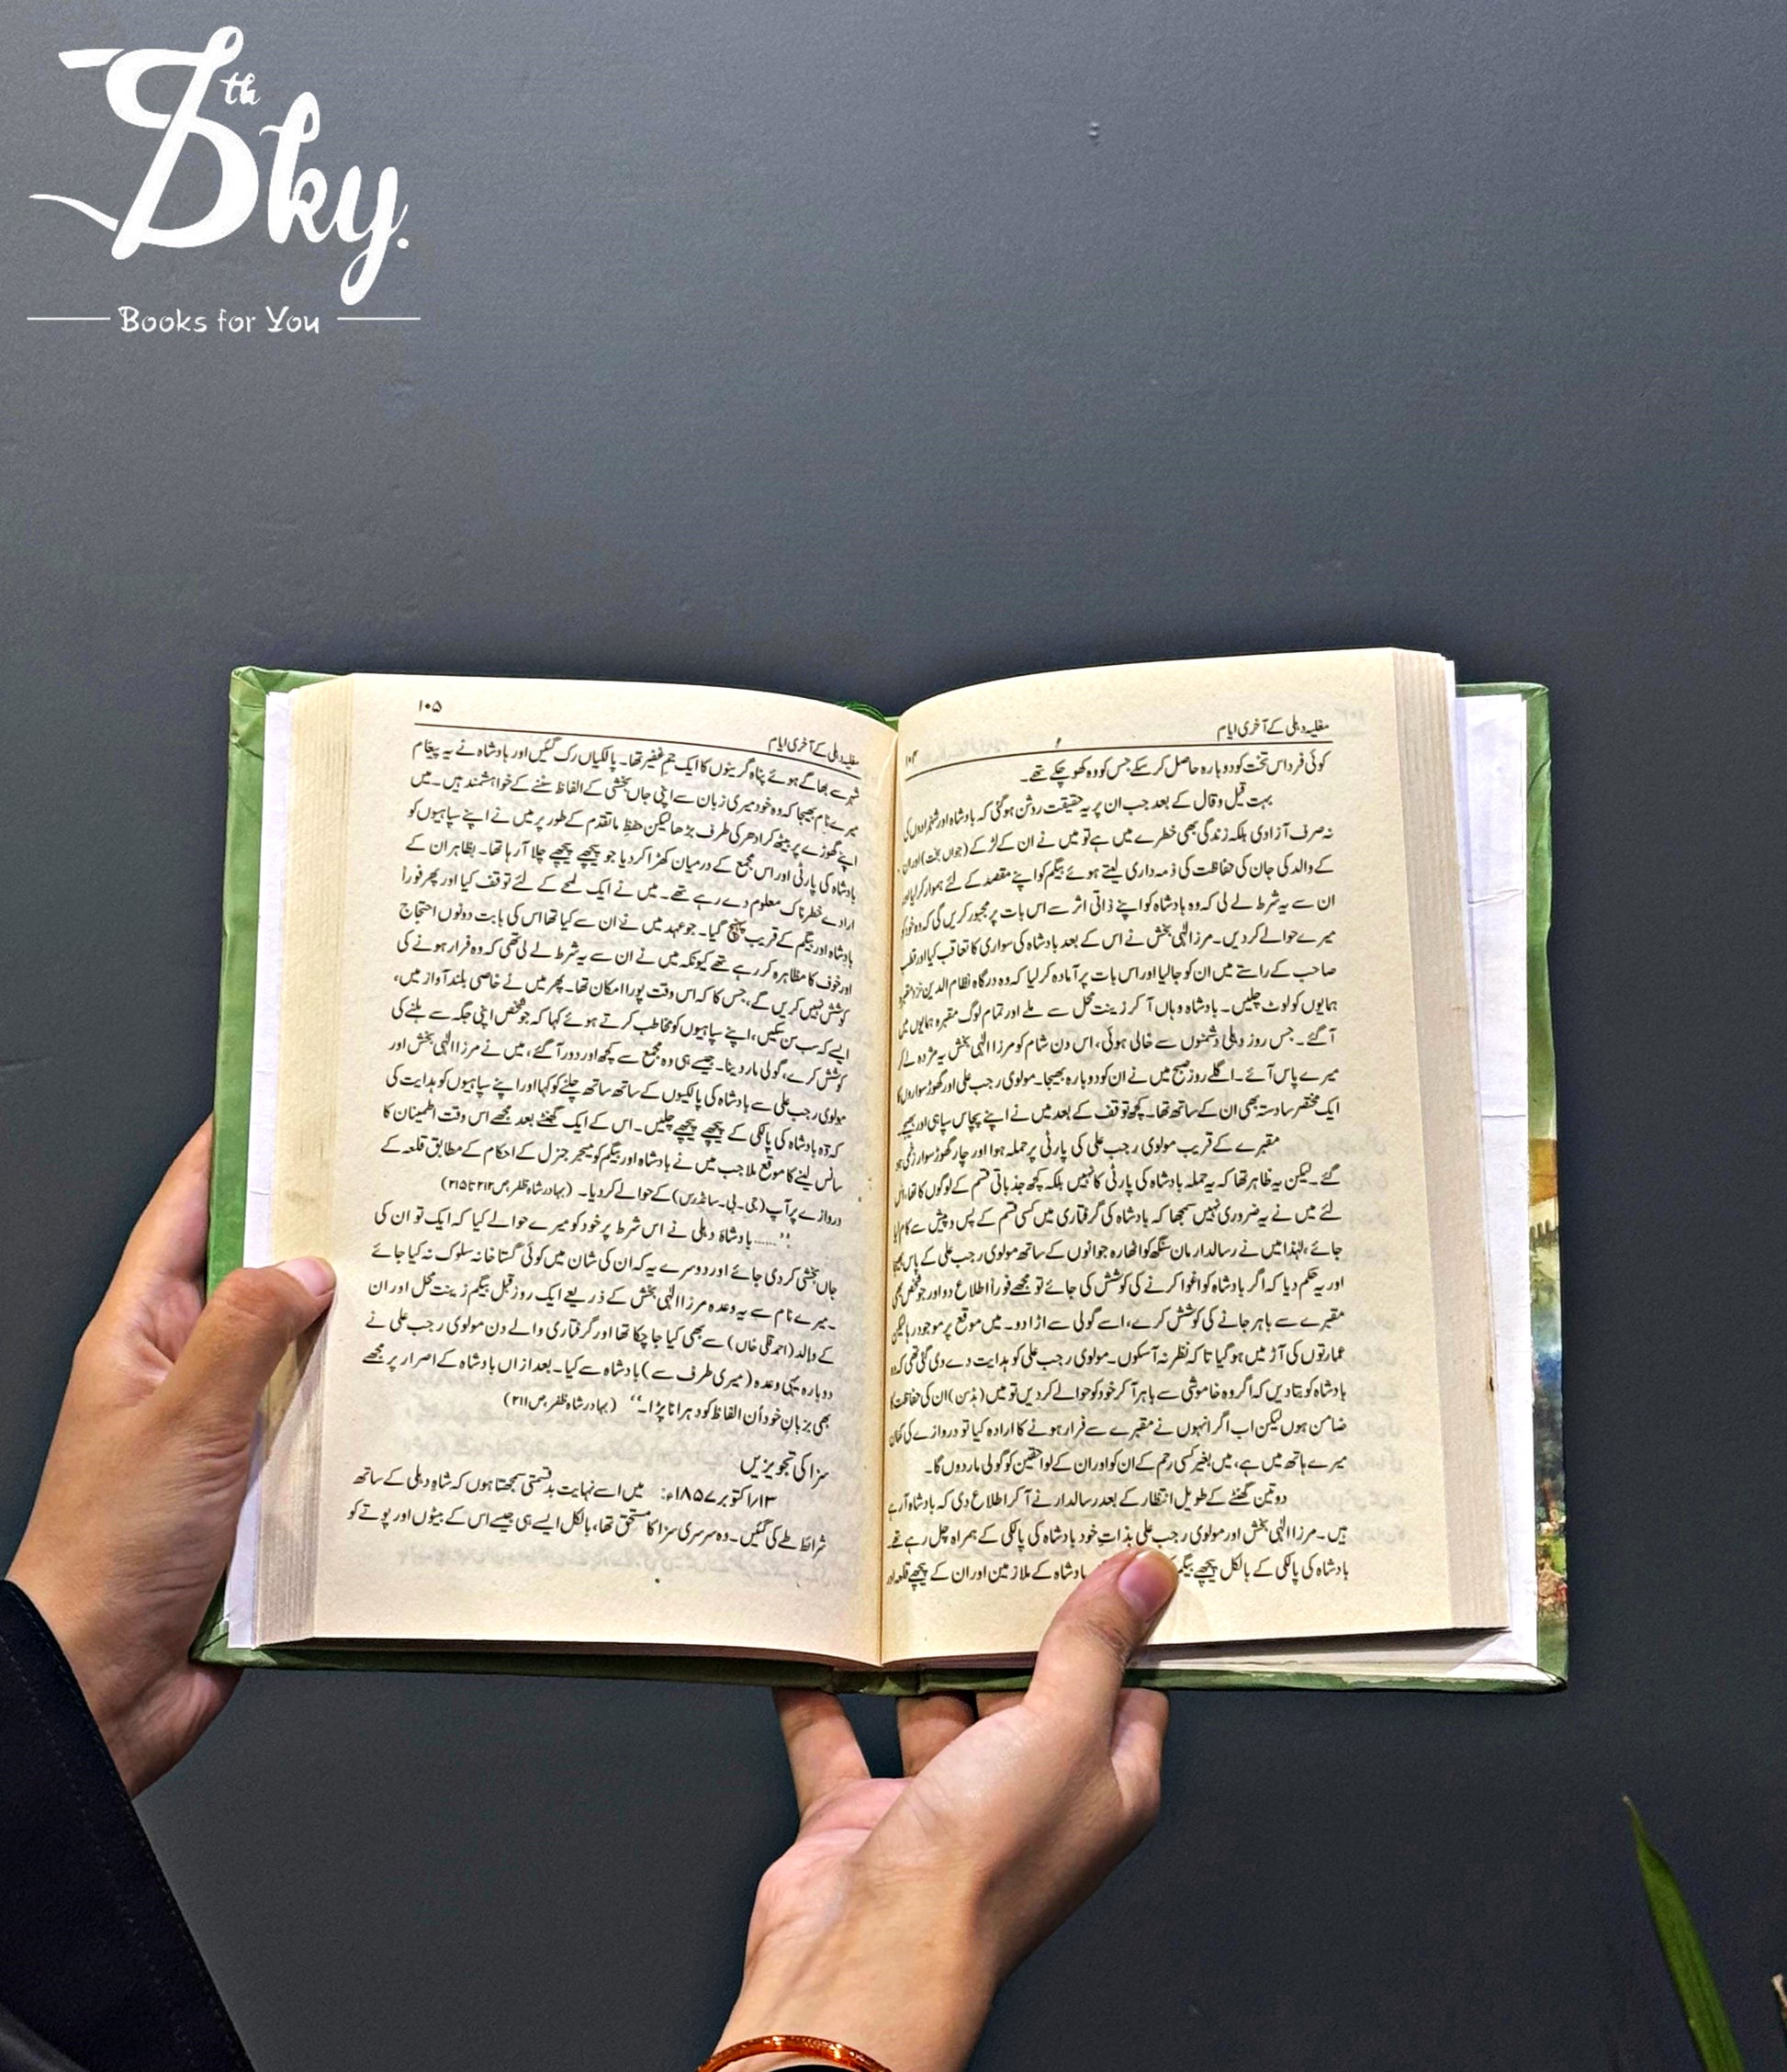 7th Sky.
Books for You
مغلیہ دہلی کے آخری ایام
۱۰۴
کوئی فرد اس تخت کو دوبارہ حاصل کر سکے جس کو وہ کھو چکے تھے۔
بہت قیل و قال کے بعد جب ان پر یہ حقیقت روشن ہوگئی کہ بادشاہ اور شہزادوں کی
نہ صرف آزادی بلکہ زندگی بھی خطرے میں ہے تو میں نے ان کے لڑکے (جواں بخت) اور ان
کے والد کی جان کی حفاظت کی ذمہ داری لیتے ہوئے بیگم کو اپنے مقصد کے لئے ہموار کر لیا اور
ان سے یہ شرط لے لی کہ وہ بادشاہ کو اپنے ذاتی اثر سے اس بات پر مجبور کریں گی کہ وہ خود کو
میرے حوالے کر دیں۔ مرزا الٰہی بخش نے اس کے بعد بادشاہ کی سواری کا تعاقب کیا اور قطب
صاحب کے راستے میں ان کو جا لیا اور اس بات پر آمادہ کر لیا کہ وہ درگاہ نظام الدین نزد مقبرہ
ہمایوں کو لوٹ چلیں۔ بادشاہ وہاں آ کر زینت محل سے ملے اور تمام لوگ مقبرہ ہمایوں میں
آگئے۔ جس روز دہلی دشمنوں سے خالی ہوئی، اس دن شام کو مرزا الٰہی بخش یہ مژدہ لے کر
میرے پاس آئے۔ اگلے روز صبح میں نے ان کو دوبارہ بھیجا۔ مولوی رجب علی اور گھوڑ سواروں کا
ایک مختصر سا دستہ بھی ان کے ساتھ تھا۔ کچھ توقف کے بعد میں نے اپنے پچاس سپاہی اور بھیجے
مقبرے کے قریب مولوی رجب علی کی پارٹی پر حملہ ہوا اور چار گھوڑ سوار زخمی ہو
گئے۔ لیکن یہ ظاہر تھا کہ یہ حملہ بادشاہ کی پارٹی کا نہیں بلکہ کچھ جذباتی قسم کے لوگوں کا تھا، اس
لئے میں نے یہ ضروری نہیں سمجھا کہ بادشاہ کی گرفتاری میں کسی قسم کے پس و پیش سے کام لیا
جائے، لہٰذا میں نے رسالدار مان سنگھ کو اٹھارہ جوانوں کے ساتھ مولوی رجب علی کے پاس بھیجا
اور یہ حکم دیا کہ اگر بادشاہ کو اغوا کرنے کی کوشش کی جائے تو مجھے فوراً اطلاع دو اور جو شخص بھی
مقبرے سے باہر جانے کی کوشش کرے، اسے گولی سے اڑا دو۔ میں موقع پر موجود رہا لیکن
عمارتوں کی آڑ میں ہو گیا تا کہ نظر نہ آسکوں۔ مولوی رجب علی کو ہدایت دے دی گئی تھی کہ وہ
بادشاہ کو بتا دیں کہ اگر وہ خاموشی سے باہر آ کر خود کو حوالے کر دیں تو میں (ہڈسن) ان کی حفاظت کا
ضامن ہوں لیکن اب اگر انہوں نے مقبرے سے فرار ہونے کا ارادہ کیا تو دروازے کی کمان
میرے ہاتھ میں ہے، میں بغیر کسی رحم کے ان کو اور ان کے لواحقین کو گولی مار دوں گا۔
دو تین گھنٹے کے طویل انتظار کے بعد رسالدار نے آ کر اطلاع دی کہ بادشاہ آ رہے
ہیں۔ مرزا الٰہی بخش اور مولوی رجب علی بذاتِ خود بادشاہ کی پالکی کے ہمراہ چل رہے تھے۔
بادشاہ کی پالکی کے بالکل پیچھے بیگم بادشاہ کے ملازمین اور ان کے پیچھے قلعہ اور
مغلیہ دہلی کے آخری ایام
۱۰۵
شہر سے بھاگے ہوئے پناہ گزینوں کا ایک جم غفیر تھا۔ پالکیاں رک گئیں اور بادشاہ نے یہ پیغام
میرے نام بھیجا کہ وہ خود میری زبان سے اپنی جاں بخشی کے الفاظ سننے کے خواہشمند ہیں۔ میں
اپنے گھوڑے پر بیٹھ کر ادھر کی طرف بڑھا لیکن حفظ ماتقدم کے طور پر میں نے اپنے سپاہیوں کو
بادشاہ کی پارٹی اور اس مجمع کے درمیان کھڑا کر دیا جو پیچھے پیچھے چلا آ رہا تھا۔ بظاہر ان کے
ارادے خطرناک معلوم دے رہے تھے۔ میں نے ایک لمحے کے لئے توقف کیا اور پھر فوراً
بادشاہ اور بیگم کے قریب پہنچ گیا۔ جو عہد میں نے ان سے کیا تھا اس کی بابت دونوں احتجاج
اور خوف کا مظاہرہ کر رہے تھے کیونکہ میں نے ان سے یہ شرط لے لی تھی کہ وہ فرار ہونے کی
کوشش نہیں کریں گے، جس کا کہ اس وقت پورا امکان تھا۔ پھر میں نے خاصی بلند آواز میں،
ایسے کہ سب سن سکیں، اپنے سپاہیوں کو مخاطب کرتے ہوئے کہا کہ جو شخص اپنی جگہ سے ہلنے کی
کوشش کرے، گولی مار دینا۔ جیسے ہی وہ مجمع سے کچھ اور دور آ گئے، میں نے مرزا الٰہی بخش اور
مولوی رجب علی سے بادشاہ کی پالکیوں کے ساتھ ساتھ چلنے کو کہا اور اپنے سپاہیوں کو ہدایت کی
کہ وہ بادشاہ کی پالکی کے پیچھے پیچھے چلیں۔ اس کے ایک گھنٹے بعد مجھے اس وقت اطمینان کا
سانس لینے کا موقع ملا جب میں نے بادشاہ اور بیگم کو میجر جنرل کے احکام کے مطابق قلعہ کے
دروازے پر آپ (جی۔ بی۔ سانڈرس) کے حوالے کر دیا۔ (بہادر شاہ ظفر، ص ۲۱۴ تا ۲۱۵)
’’......بادشاہ دہلی نے اس شرط پر خود کو میرے حوالے کیا کہ ایک تو ان کی
جاں بخشی کر دی جائے اور دوسرے یہ کہ ان کی شان میں کوئی گستاخانہ سلوک نہ کیا جائے
۔ میرے نام سے یہ وعدہ مرزا الٰہی بخش کے ذریعے ایک روز قبل بیگم زینت محل اور ان
کے والد (احمد قلی خاں) سے بھی کیا جا چکا تھا اور گرفتاری والے دن مولوی رجب علی نے
دوبارہ یہی وعدہ (میری طرف سے) بادشاہ سے کیا۔ بعد ازاں بادشاہ کے اصرار پر مجھے
بھی بزبانِ خود اُن الفاظ کو دہرانا پڑا۔‘‘ (بہادر شاہ ظفر، ص ۲۱۱)
سزا کی تجویزیں
۱۳/اکتوبر ۱۸۵۷ء: میں اسے نہایت بدقسمتی سمجھتا ہوں کہ شاہ دہلی کے ساتھ
شرائط طے کی گئیں۔ وہ سرسری سزا کا مستحق تھا، بالکل ایسے ہی جیسے اس کے بیٹوں اور پوتے کو